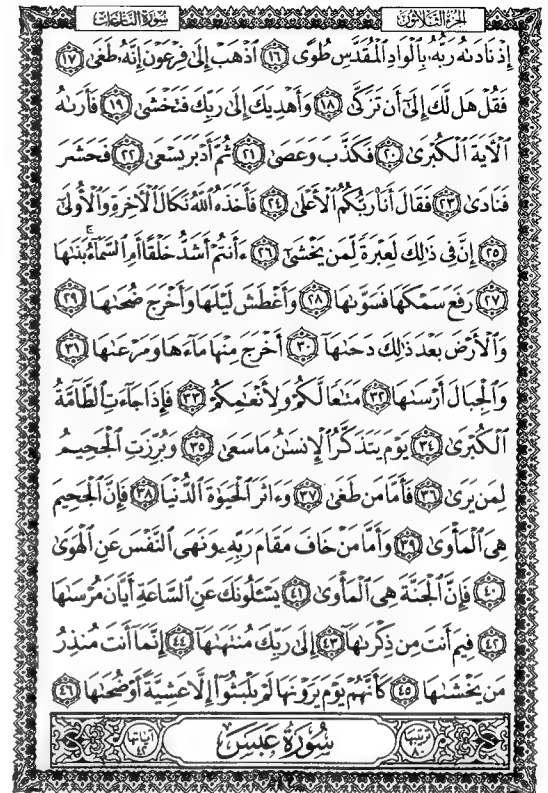 الجزء الثلاثون سورة النازعات
إِذْ نَادَىٰهُ رَبُّهُۥ بِٱلْوَادِ ٱلْمُقَدَّسِ طُوًى ﴿١٦﴾ ٱذْهَبْ إِلَىٰ فِرْعَوْنَ إِنَّهُۥ طَغَىٰ ﴿١٧﴾
فَقُلْ هَل لَّكَ إِلَىٰٓ أَن تَزَكَّىٰ ﴿١٨﴾ وَأَهْدِيَكَ إِلَىٰ رَبِّكَ فَتَخْشَىٰ ﴿١٩﴾ فَأَرَىٰهُ
ٱلْءَايَةَ ٱلْكُبْرَىٰ ﴿٢٠﴾ فَكَذَّبَ وَعَصَىٰ ﴿٢١﴾ ثُمَّ أَدْبَرَ يَسْعَىٰ ﴿٢٢﴾ فَحَشَرَ
فَنَادَىٰ ﴿٢٣﴾ فَقَالَ أَنَا۠ رَبُّكُمُ ٱلْأَعْلَىٰ ﴿٢٤﴾ فَأَخَذَهُ ٱللَّهُ نَكَالَ ٱلْءَاخِرَةِ وَٱلْأُولَىٰٓ
﴿٢٥﴾ إِنَّ فِى ذَٰلِكَ لَعِبْرَةً لِّمَن يَخْشَىٰٓ ﴿٢٦﴾ ءَأَنتُمْ أَشَدُّ خَلْقًا أَمِ ٱلسَّمَآءُ ۚ بَنَىٰهَا
﴿٢٧﴾ رَفَعَ سَمْكَهَا فَسَوَّىٰهَا ﴿٢٨﴾ وَأَغْطَشَ لَيْلَهَا وَأَخْرَجَ ضُحَىٰهَا ﴿٢٩﴾
وَٱلْأَرْضَ بَعْدَ ذَٰلِكَ دَحَىٰهَآ ﴿٣٠﴾ أَخْرَجَ مِنْهَا مَآءَهَا وَمَرْعَىٰهَا ﴿٣١﴾
وَٱلْجِبَالَ أَرْسَىٰهَا ﴿٣٢﴾ مَتَٰعًا لَّكُمْ وَلِأَنْعَٰمِكُمْ ﴿٣٣﴾ فَإِذَا جَآءَتِ ٱلطَّآمَّةُ
ٱلْكُبْرَىٰ ﴿٣٤﴾ يَوْمَ يَتَذَكَّرُ ٱلْإِنسَٰنُ مَا سَعَىٰ ﴿٣٥﴾ وَبُرِّزَتِ ٱلْجَحِيمُ
لِمَن يَرَىٰ ﴿٣٦﴾ فَأَمَّا مَن طَغَىٰ ﴿٣٧﴾ وَءَاثَرَ ٱلْحَيَوٰةَ ٱلدُّنْيَا ﴿٣٨﴾ فَإِنَّ ٱلْجَحِيمَ
هِىَ ٱلْمَأْوَىٰ ﴿٣٩﴾ وَأَمَّا مَنْ خَافَ مَقَامَ رَبِّهِۦ وَنَهَى ٱلنَّفْسَ عَنِ ٱلْهَوَىٰ
﴿٤٠﴾ فَإِنَّ ٱلْجَنَّةَ هِىَ ٱلْمَأْوَىٰ ﴿٤١﴾ يَسْـَٔلُونَكَ عَنِ ٱلسَّاعَةِ أَيَّانَ مُرْسَىٰهَا
﴿٤٢﴾ فِيمَ أَنتَ مِن ذِكْرَىٰهَآ ﴿٤٣﴾ إِلَىٰ رَبِّكَ مُنتَهَىٰهَآ ﴿٤٤﴾ إِنَّمَآ أَنتَ مُنذِرُ
مَن يَخْشَىٰهَا ﴿٤٥﴾ كَأَنَّهُمْ يَوْمَ يَرَوْنَهَا لَمْ يَلْبَثُوٓا۟ إِلَّا عَشِيَّةً أَوْ ضُحَىٰهَا ﴿٤٦﴾
ترتيبها ٨٠ سُورَةُ عَبَسَ آياتها ٤٢